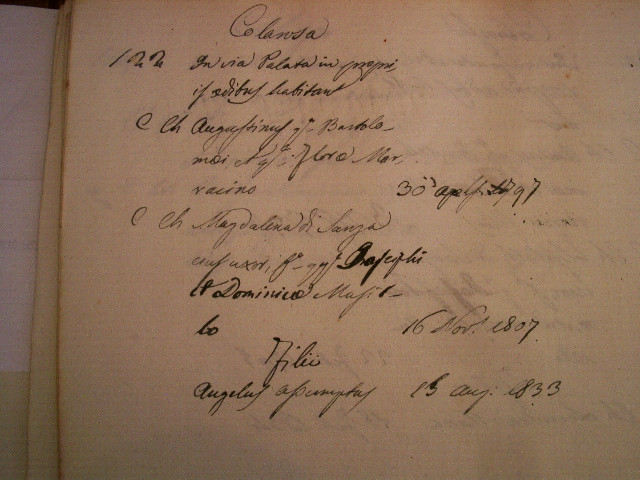 Colarosa
122 In via Palata in propri,
is ædibus habitant
C Ch Augustinus qm Bartolo-
mæi et qm Floræ Mar,
racino 30 aplis 1797
C Ch Magdalena di Sanza
ejus uxor, fa qqm Josephi
et Dominicæ Musil-
lo 16 Nov. 1807
Filii
Angelus assumptus 15 aug. 1833